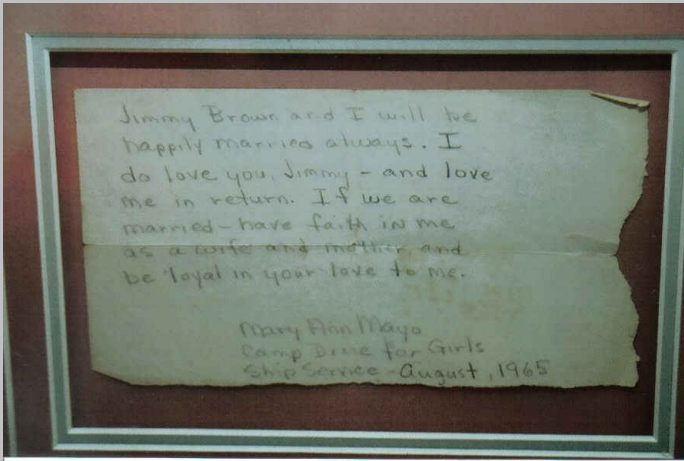 Jimmy Brown and I will be
happily married always. I
do love you, Jimmy - and love
me in return. If we are
married - have faith in me
as a wife and mother and
be loyal in your love to me.
Mary Ann Mayo
Camp for Girls
Ship Service - August, 1965